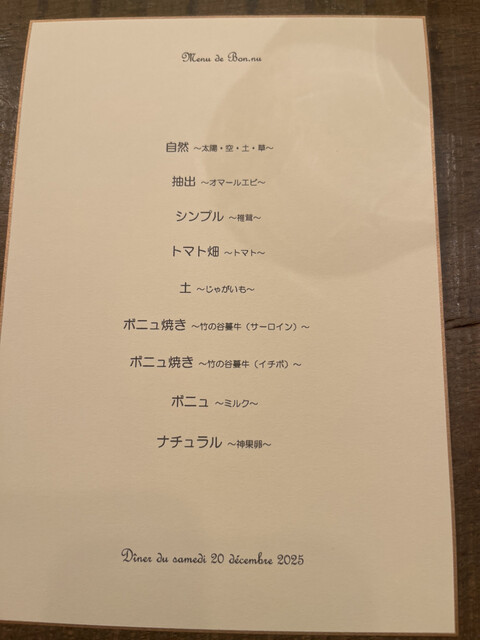 Menu de Bon.nu
自然 ～太陽・空・土・草～
抽出 ～オマールエビ～
シンプル ～椎茸～
トマト畑 ～トマト～
土 ～じゃがいも～
ボニュ焼き ～竹の谷蔓牛（サーロイン）～
ボニュ焼き ～竹の谷蔓牛（イチボ）～
ボニュ ～ミルク～
ナチュラル ～神果卵～
Dîner du samedi 20 décembre 2025